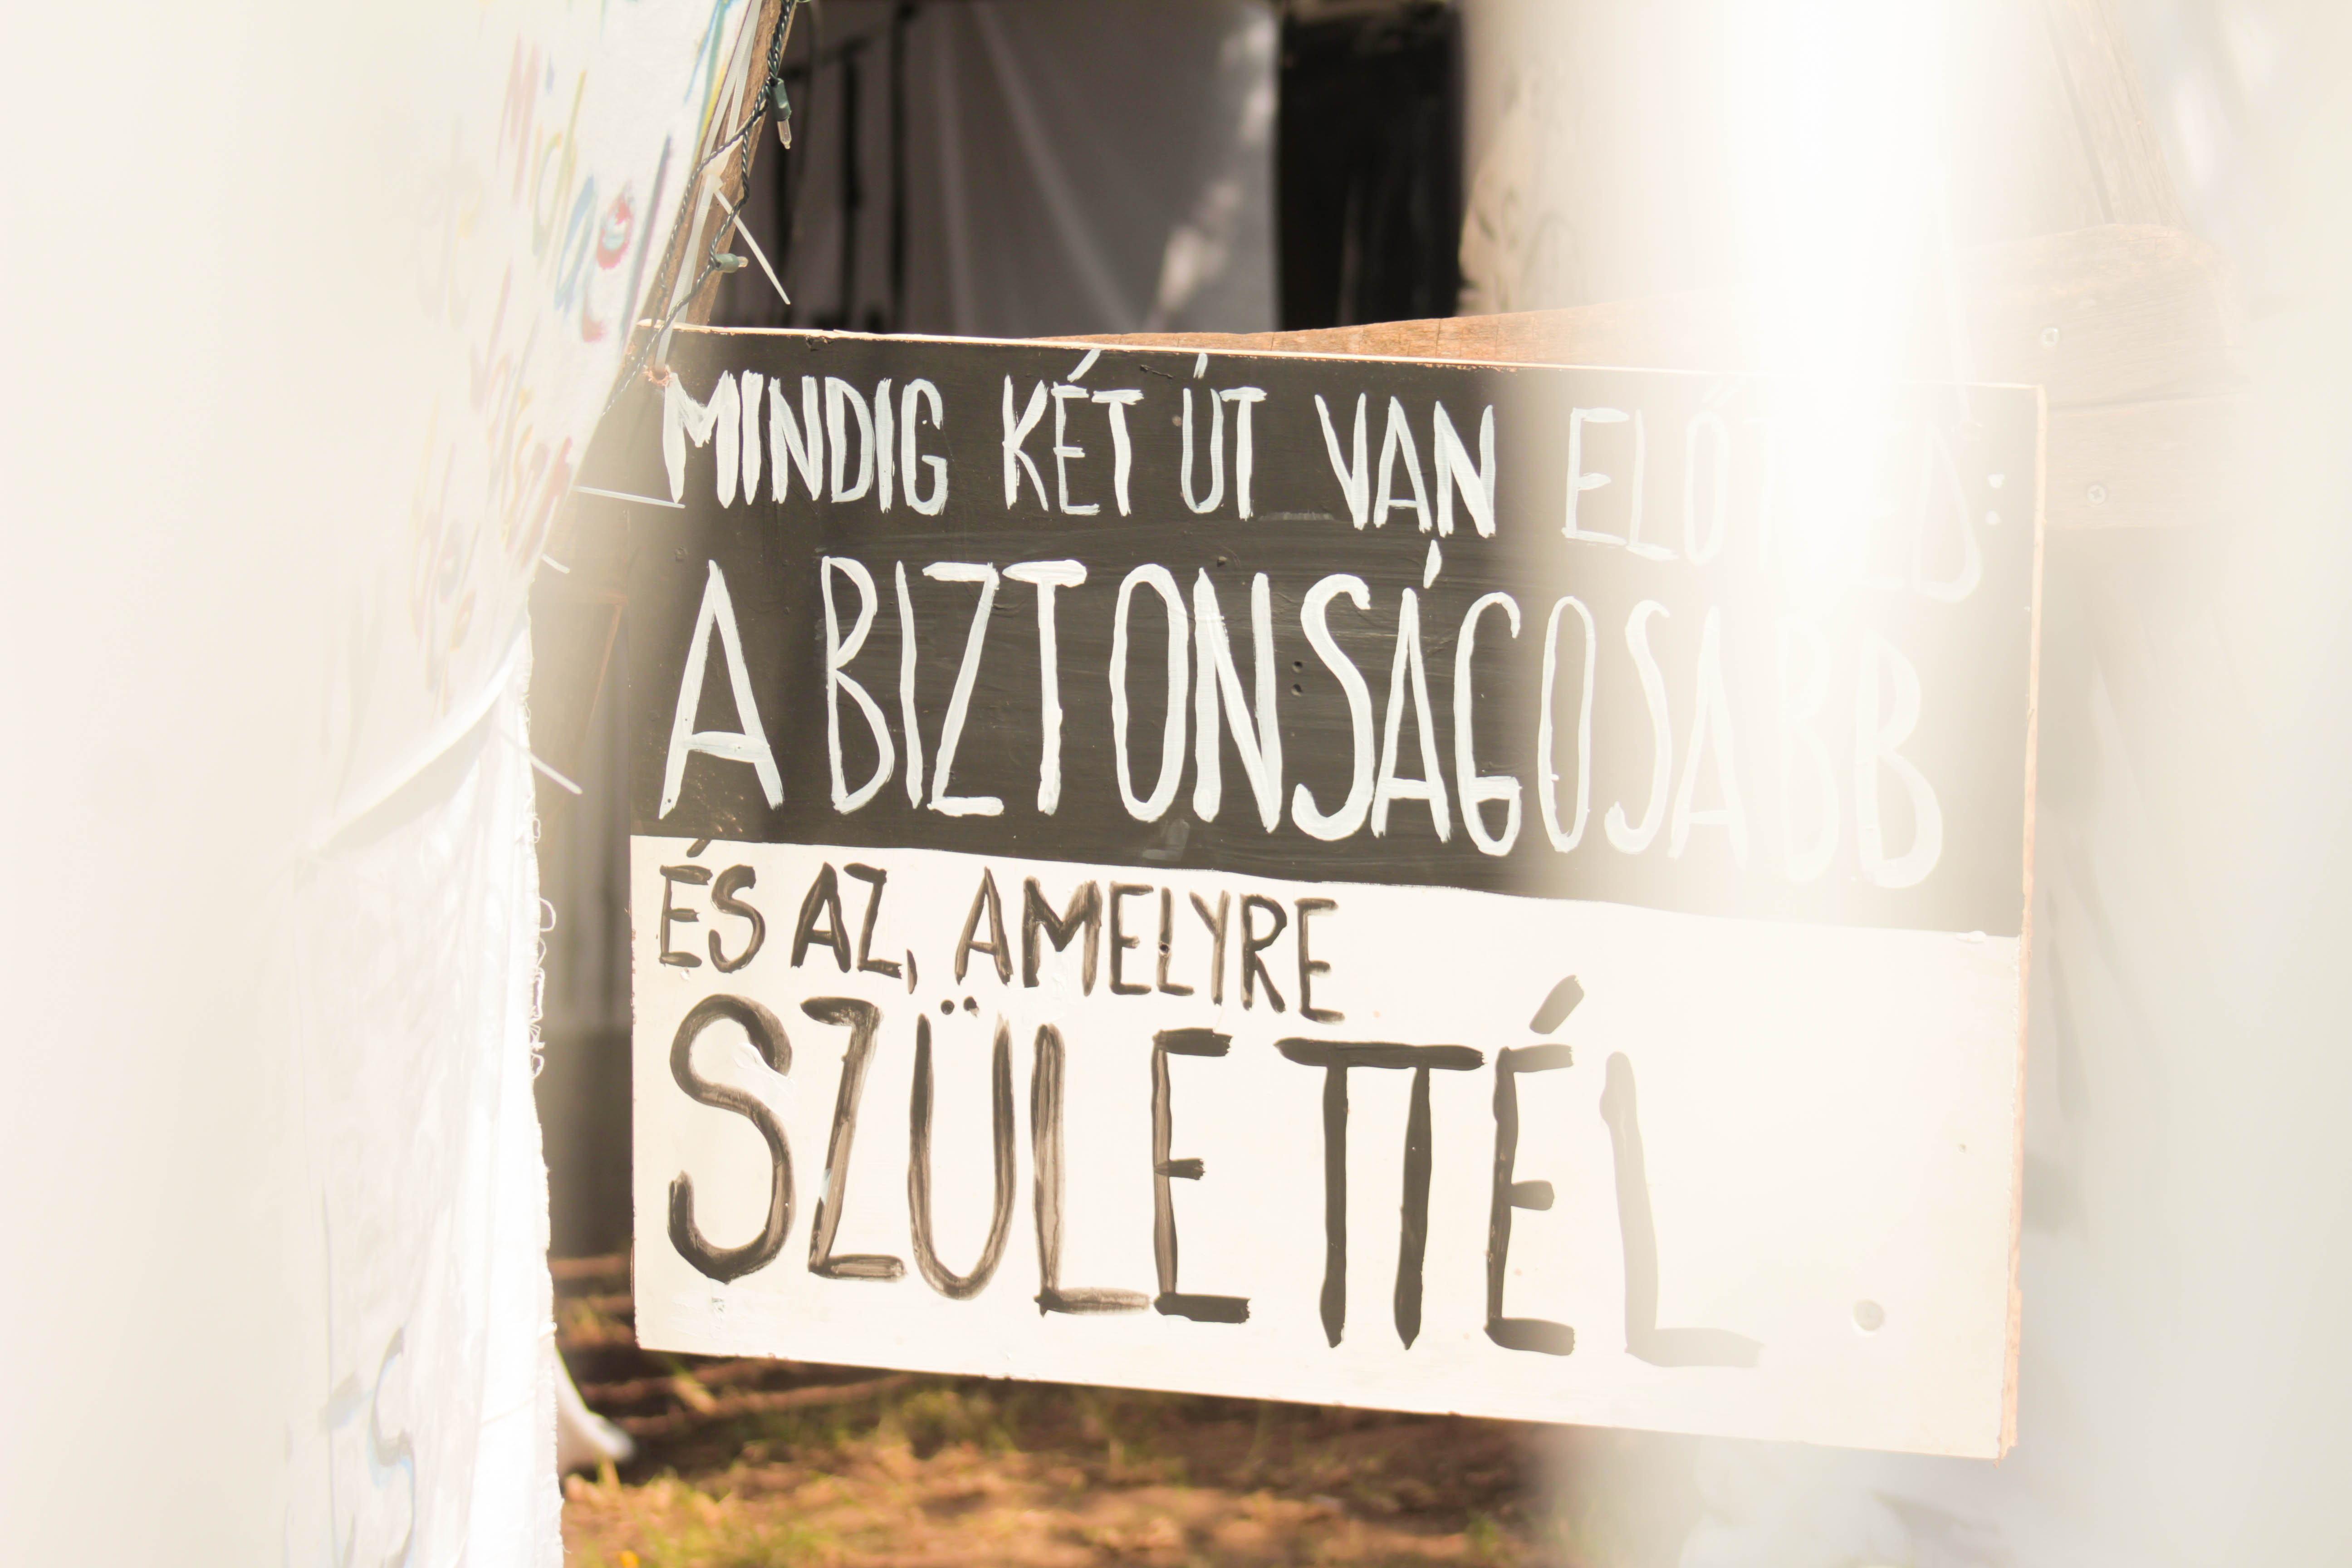 MINDIG KÉT ÚT VAN ELŐTTED:
A BIZTONSÁGOSABB
ÉS AZ, AMELYRE
SZÜLETTÉL